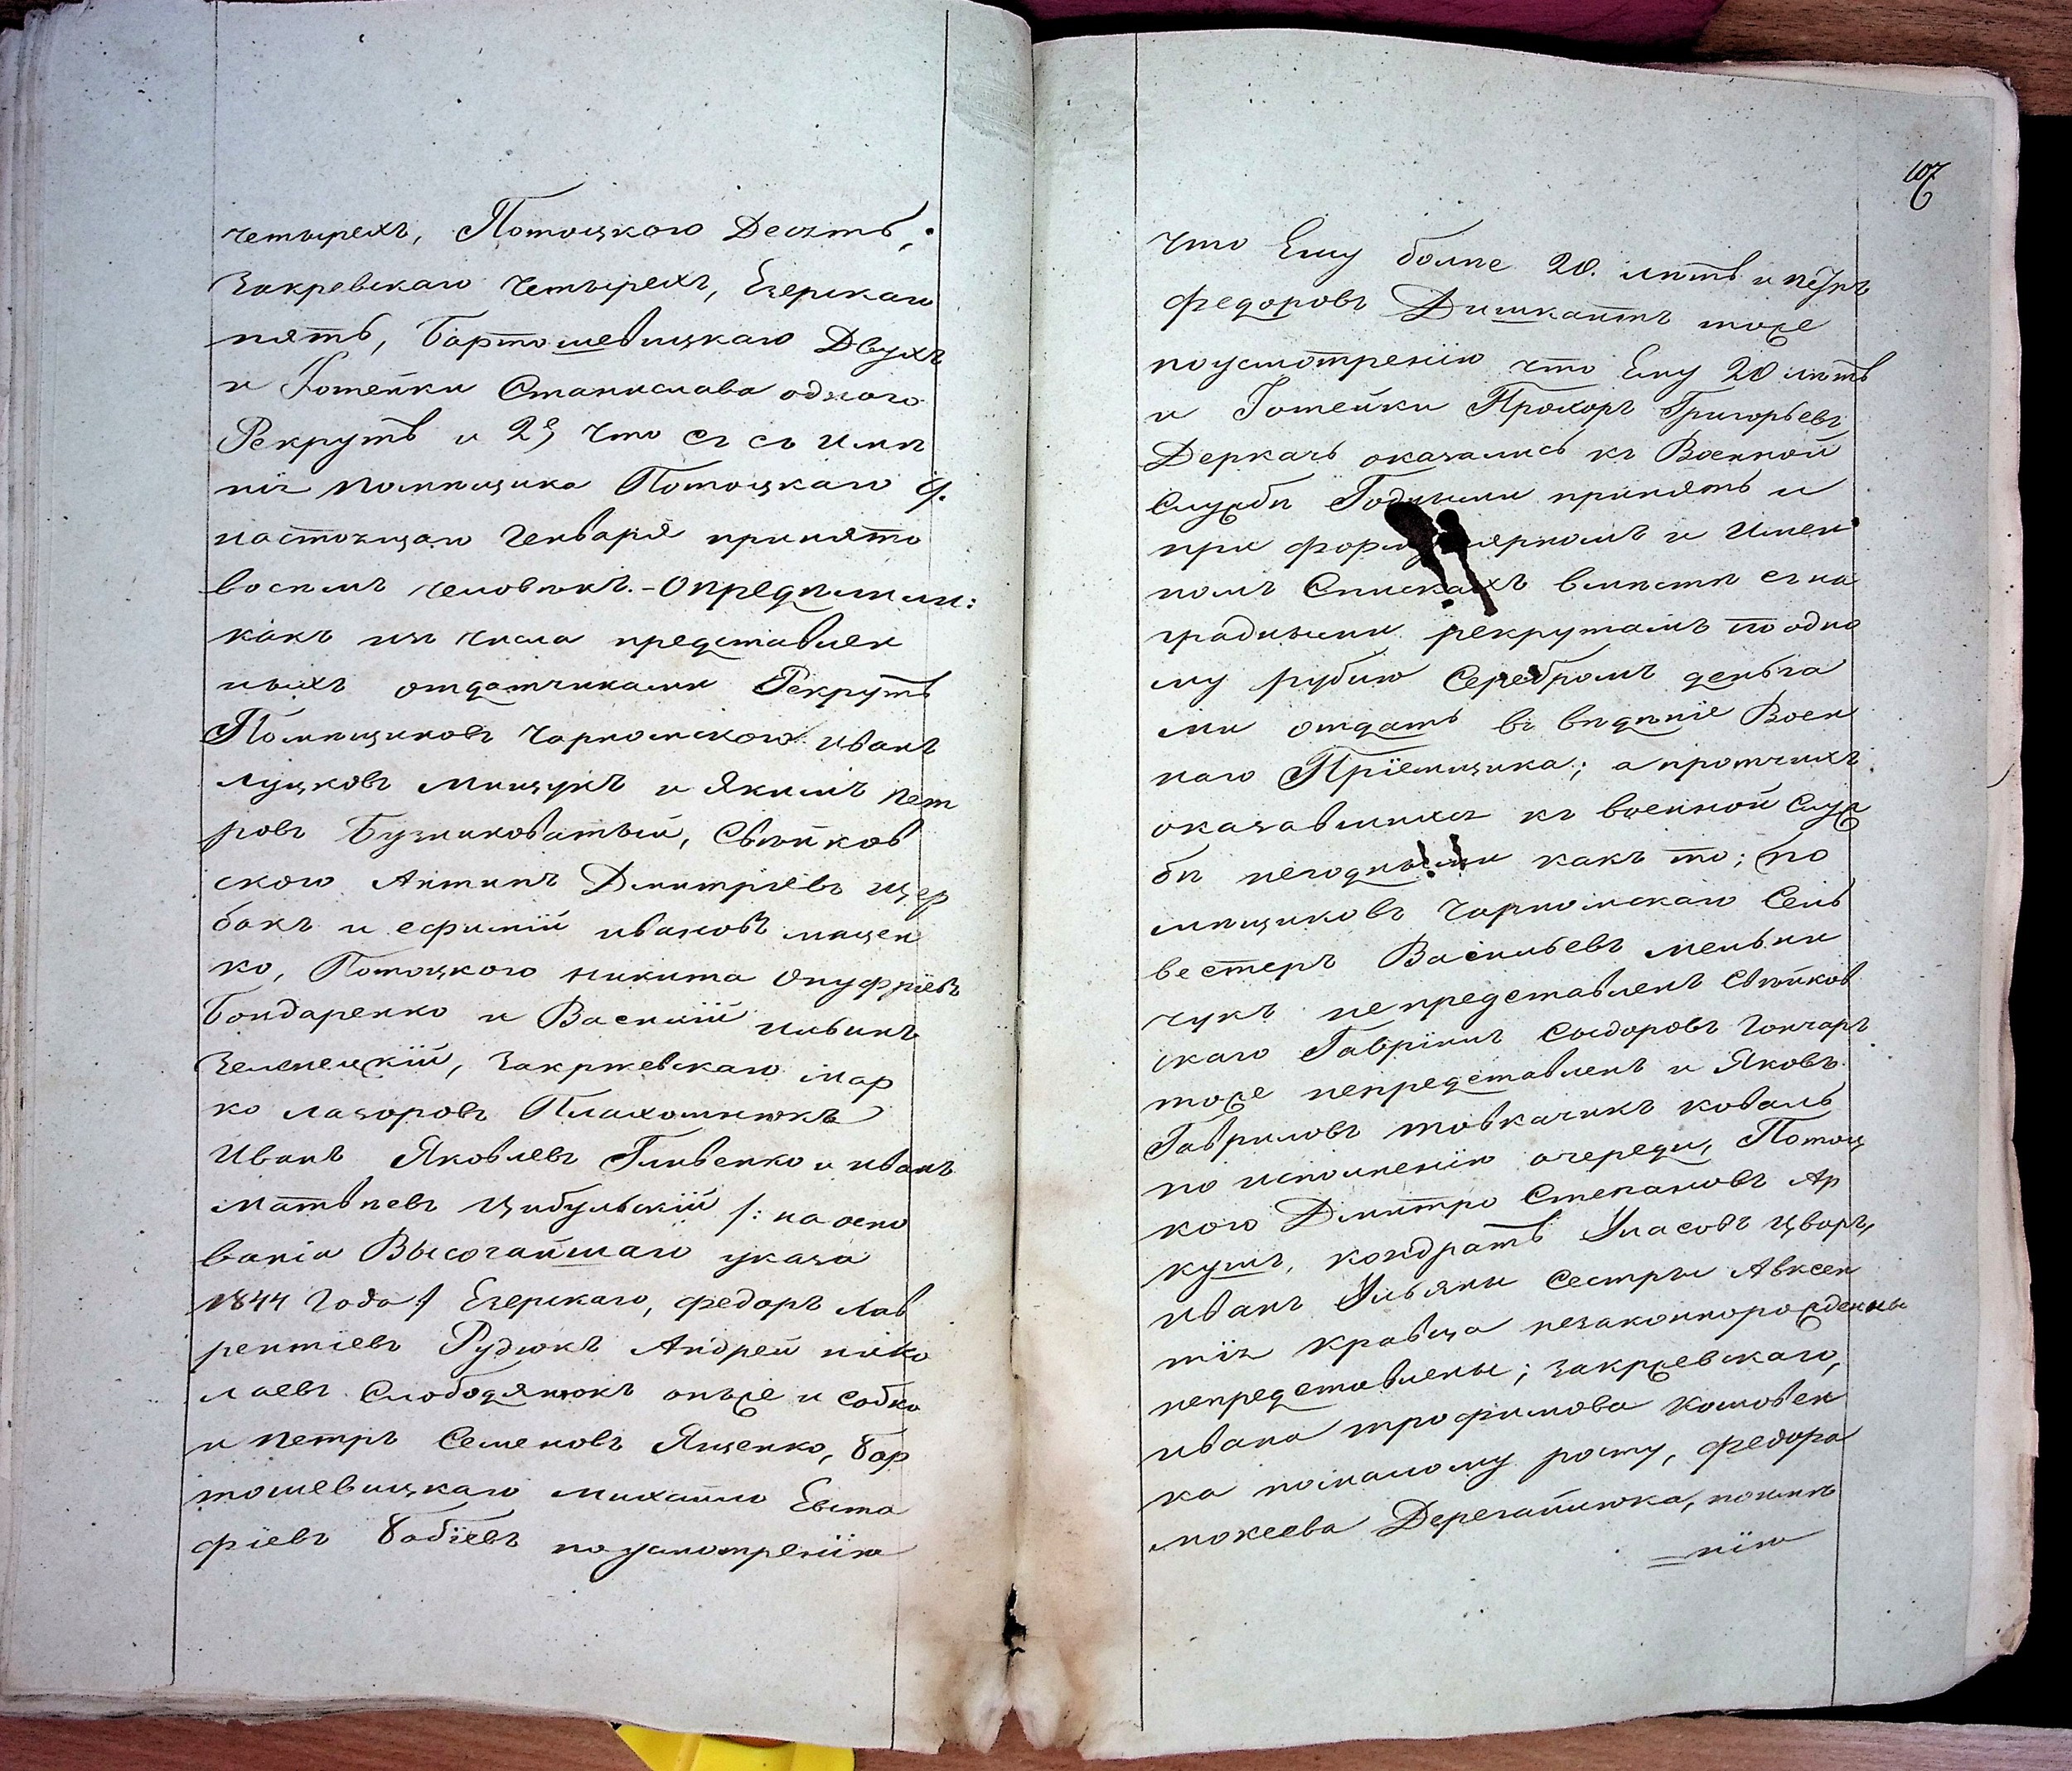 четырехъ, Потоцкого Десять,
Закревскаго Четырехъ, Езерскаго
пять, Бартошевицкаго Двухъ
и Готейки Станислава одного
Рекрутъ и 2е, Что съ съ Имѣ
нія помѣщика Потоцкаго 9.
настоящаго Генваря принято
восемъ человѣкъ. - Опредѣлили:
какъ изъ числа представлен
ныхъ отдатчиками Рекрутъ
Помѣщиковъ Чарномского иванъ
луцковъ мищукъ и Якимъ пет
ровъ Бузниковатый, Свѣйков
ского Антипъ Дмитріевъ щер
бакъ и ефимій ивановъ мацен
ко, Потоцкого никита Онуфріевъ
Бондаренко и Василій ильинъ
Зеленецкій, Закржевскаго мар
ко лазоровъ Плахотнюкъ
Иванъ Яковлевъ Гливенко и иванъ
матвѣевъ Цибульскій /: на осно
ваніи Высочайшаго указа
1844 года :/ Езерскаго, федоръ лав
рентіевъ Рудюкъ Андрей нико
лаевъ Слободянюкъ онъже и собко
и петръ Семеновъ Яценко, бар
тошевицкаго михайло Евста
фіевъ бабіевъ поусмотренію
107
что Ему болѣе 20. лѣтъ и
федоровъ Дишкантъ тоже
поусмотренію что Ему 20 лѣтъ
и Готейки Прохоръ Григорьевъ
Деркачъ оказались къ Военной
Службѣ Годными принять и
при формулярномъ и Имен
номъ Спискахъ вмѣстѣ съ на
градными рекрутамъ по одно
му рублю Серебромъ деньга
ми отдать въ вѣдѣніе Воен
наго Пріемщика; а протчихъ
оказавшихся къ военной Служ
бѣ негодными какъ то; по
мѣщиковъ Чарномскаго Силь
вестеръ Васильевъ мельни
чукъ непредставленъ Свѣйков
скаго Гаврііилъ Сыдоровъ Гончаръ
тоже непредставленъ и Яковъ
Гавриловъ товкачикъ коваль
по исполненію очереди, Потоц
кого Дмитро Степановъ Яр
кушъ, кондратъ Уласовъ цваръ,
иванъ Ульяны Сестры Авксен
тія кравца незаконнорожденны
непредставлены; закржевскаго,
ивана трофимова коновен
ка помалому росту, федора
мокеева Дерегайнюка, поимѣ
=нію